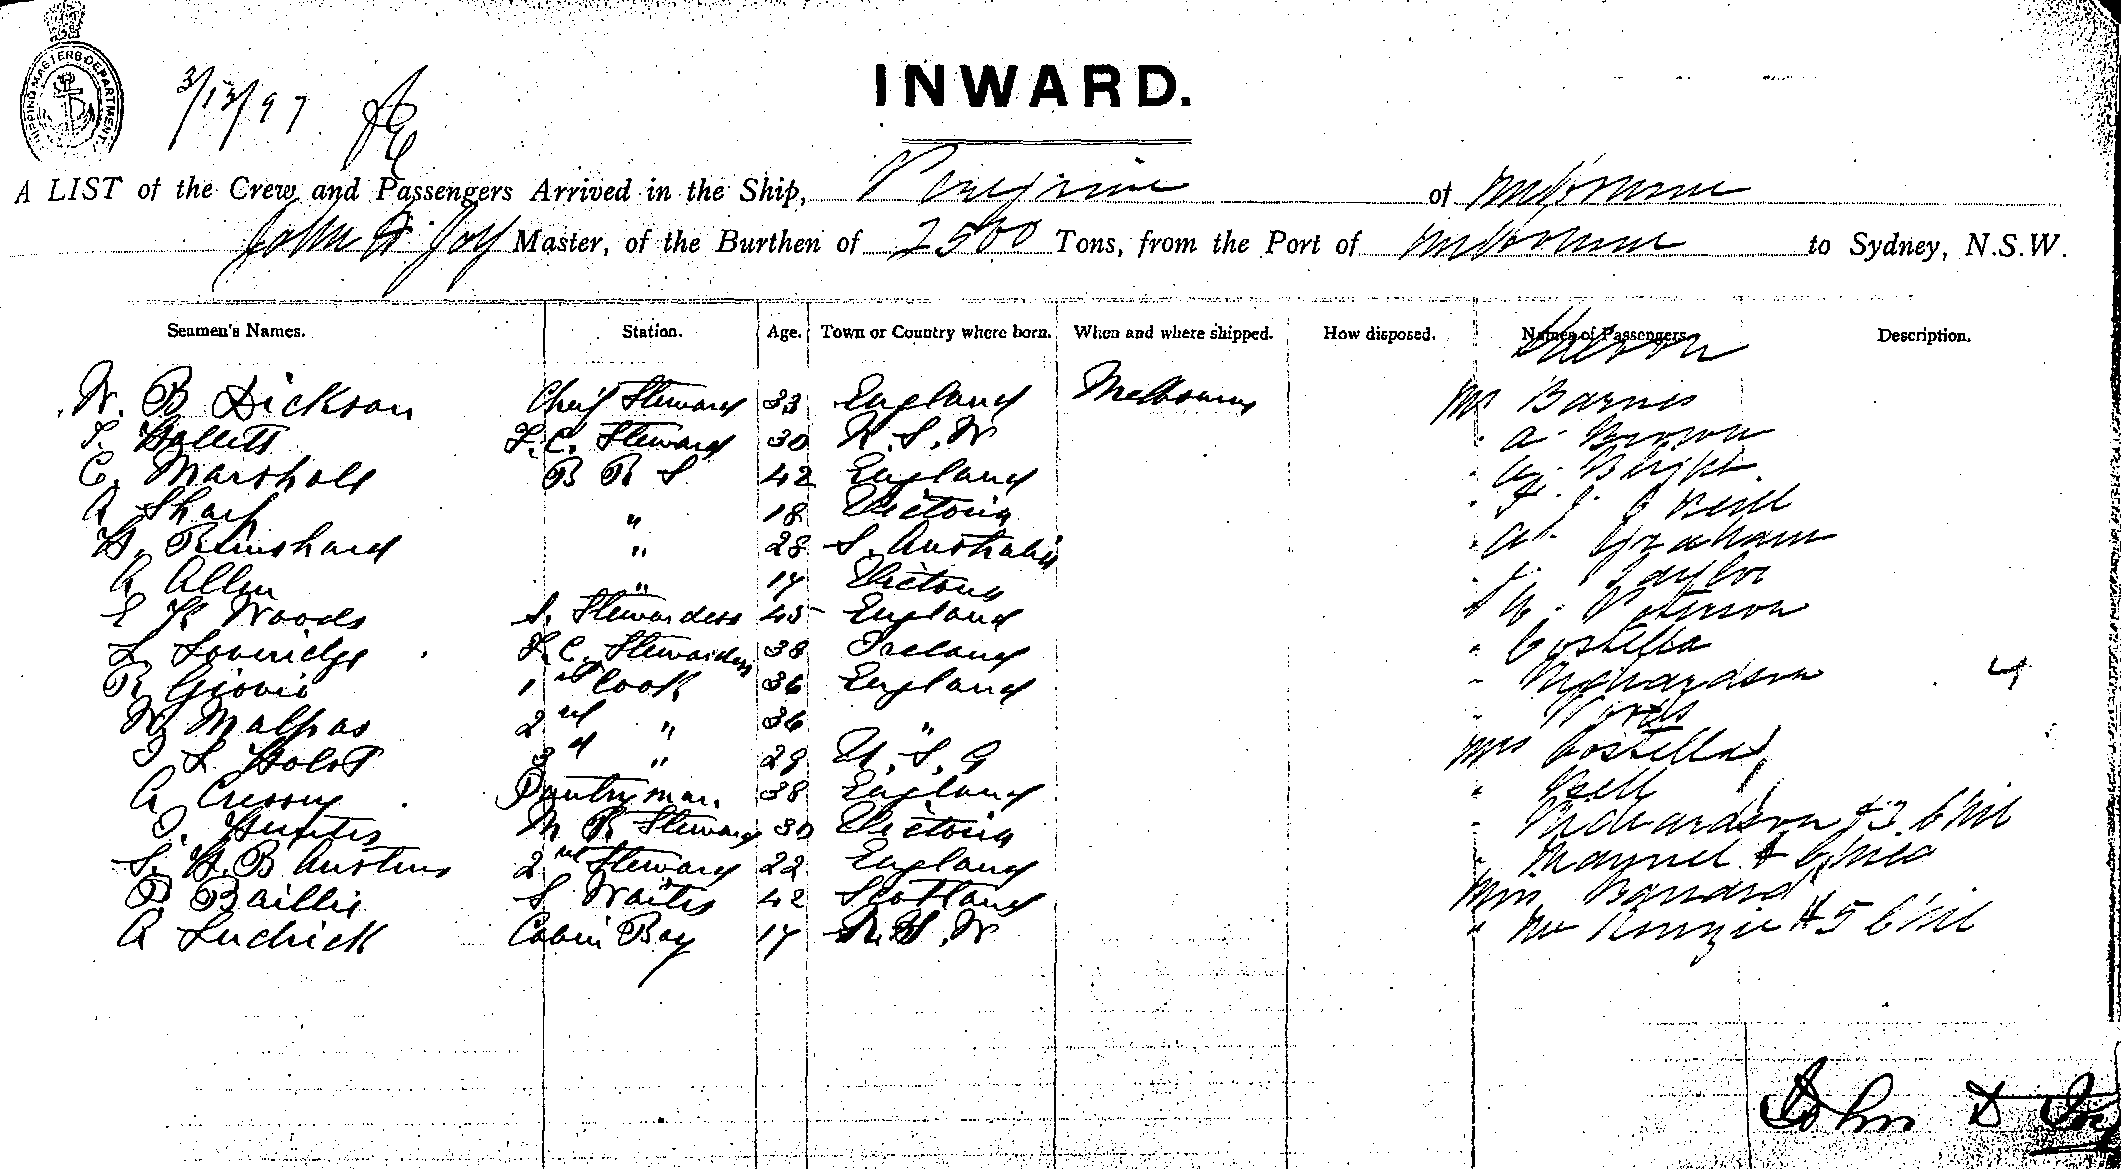 SHIPPING MASTER'S DEPARTMENT
3/12/97
INWARD.
A LIST of the Crew and Passengers Arrived in the Ship, Peregrine of Melbourne
John D Joy Master, of the Burthen of 2500 Tons, from the Port of Melbourne to Sydney, N.S.W.
Seamen's Names. Station. Age. Town or Country where born. When and where shipped. How disposed. Names of Passengers Description.
Saloon
W. B Dickson Chief Steward 33 England Melbourne Mr Barnes
F.C. Steward 30 N.S.W " A. Brown
C. Marshall B R S 42 England " Bright
A Sharp " 18 Victoria
H. " 28 S. Australia " A. Graham
A Allen " 17 Victoria " Taylor
E Woods S. Stewardess 45 England " Peterson
L Loveridge F.C. Stewardess 38 Ireland " Costella
R 1st Cook 36 England " Richardson 4
W Malpas 2nd " 36 "
3rd " 29 U.S.A Mrs Costella
A Pantryman 38 England " Bell
M R Steward 30 Victoria " Richardson & 3 Chil
S. H. B Austins 2nd Steward 22 England " & Child
B Baillie S Waiter 42 Scotland Miss
A Cabin Boy 17 N.S.W " & 5 Chil
John D Joy